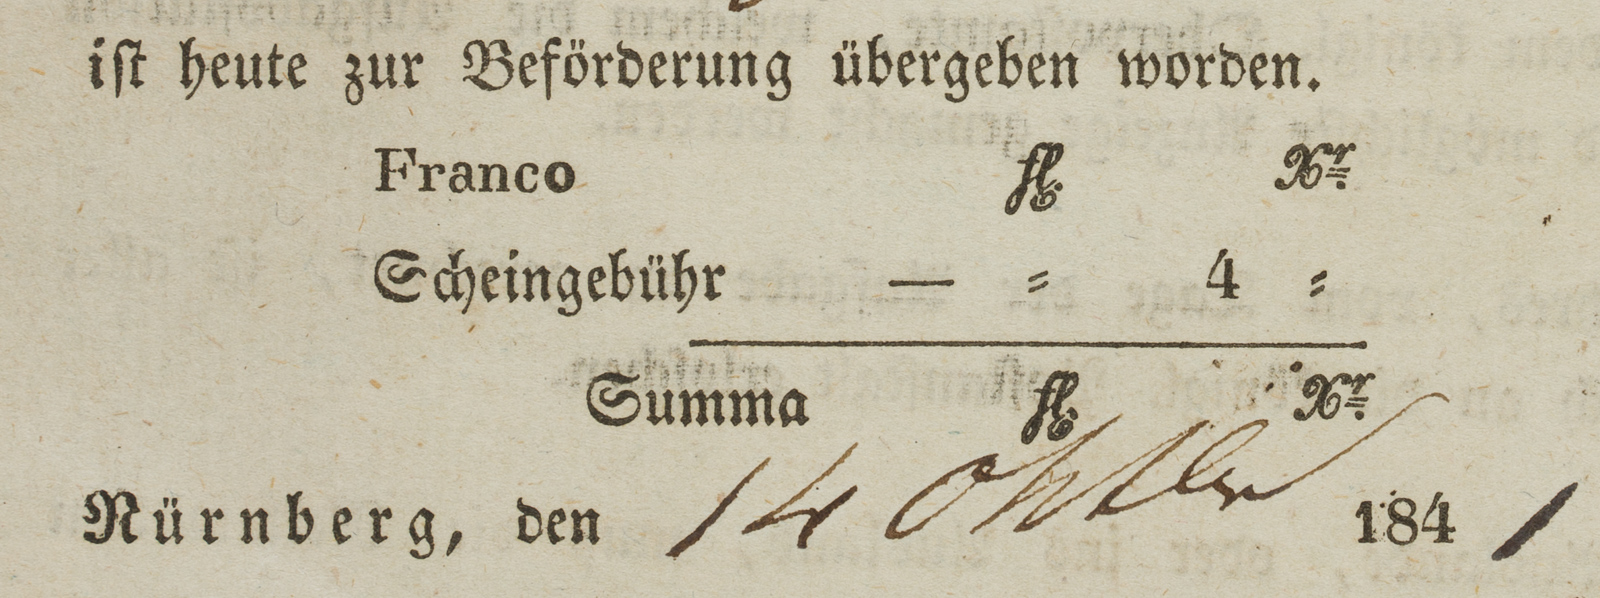 ist heute zur Beförderung übergeben worden.
Franco fl. Xr.
Scheingebühr — = 4 =
Summa fl. Xr.
Nürnberg, den 14 Oktbr 184 1